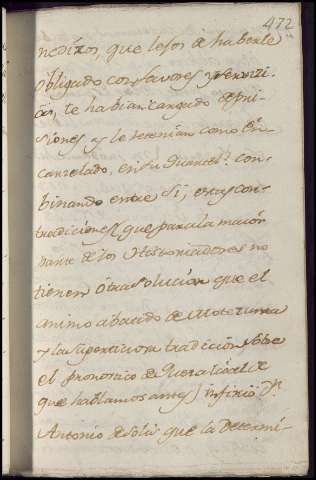 472
nedizos, que lejos de haberle
obligado con favores y benefi-
cios, le habian cargado de pri-
siones y le tenian como en-
carzelado, en su Quartel. Con-
binando entre si, estas con-
tradiciones (que para la maior
parte de los Historiadores no
tienen otra solución que el
animo abatido de Motezuma
y la supersticiosa tradición sobre
el pronostico de Quezalcoal de
que hablamos antes) infirió Dn.
Antonio de Solis que la determi-